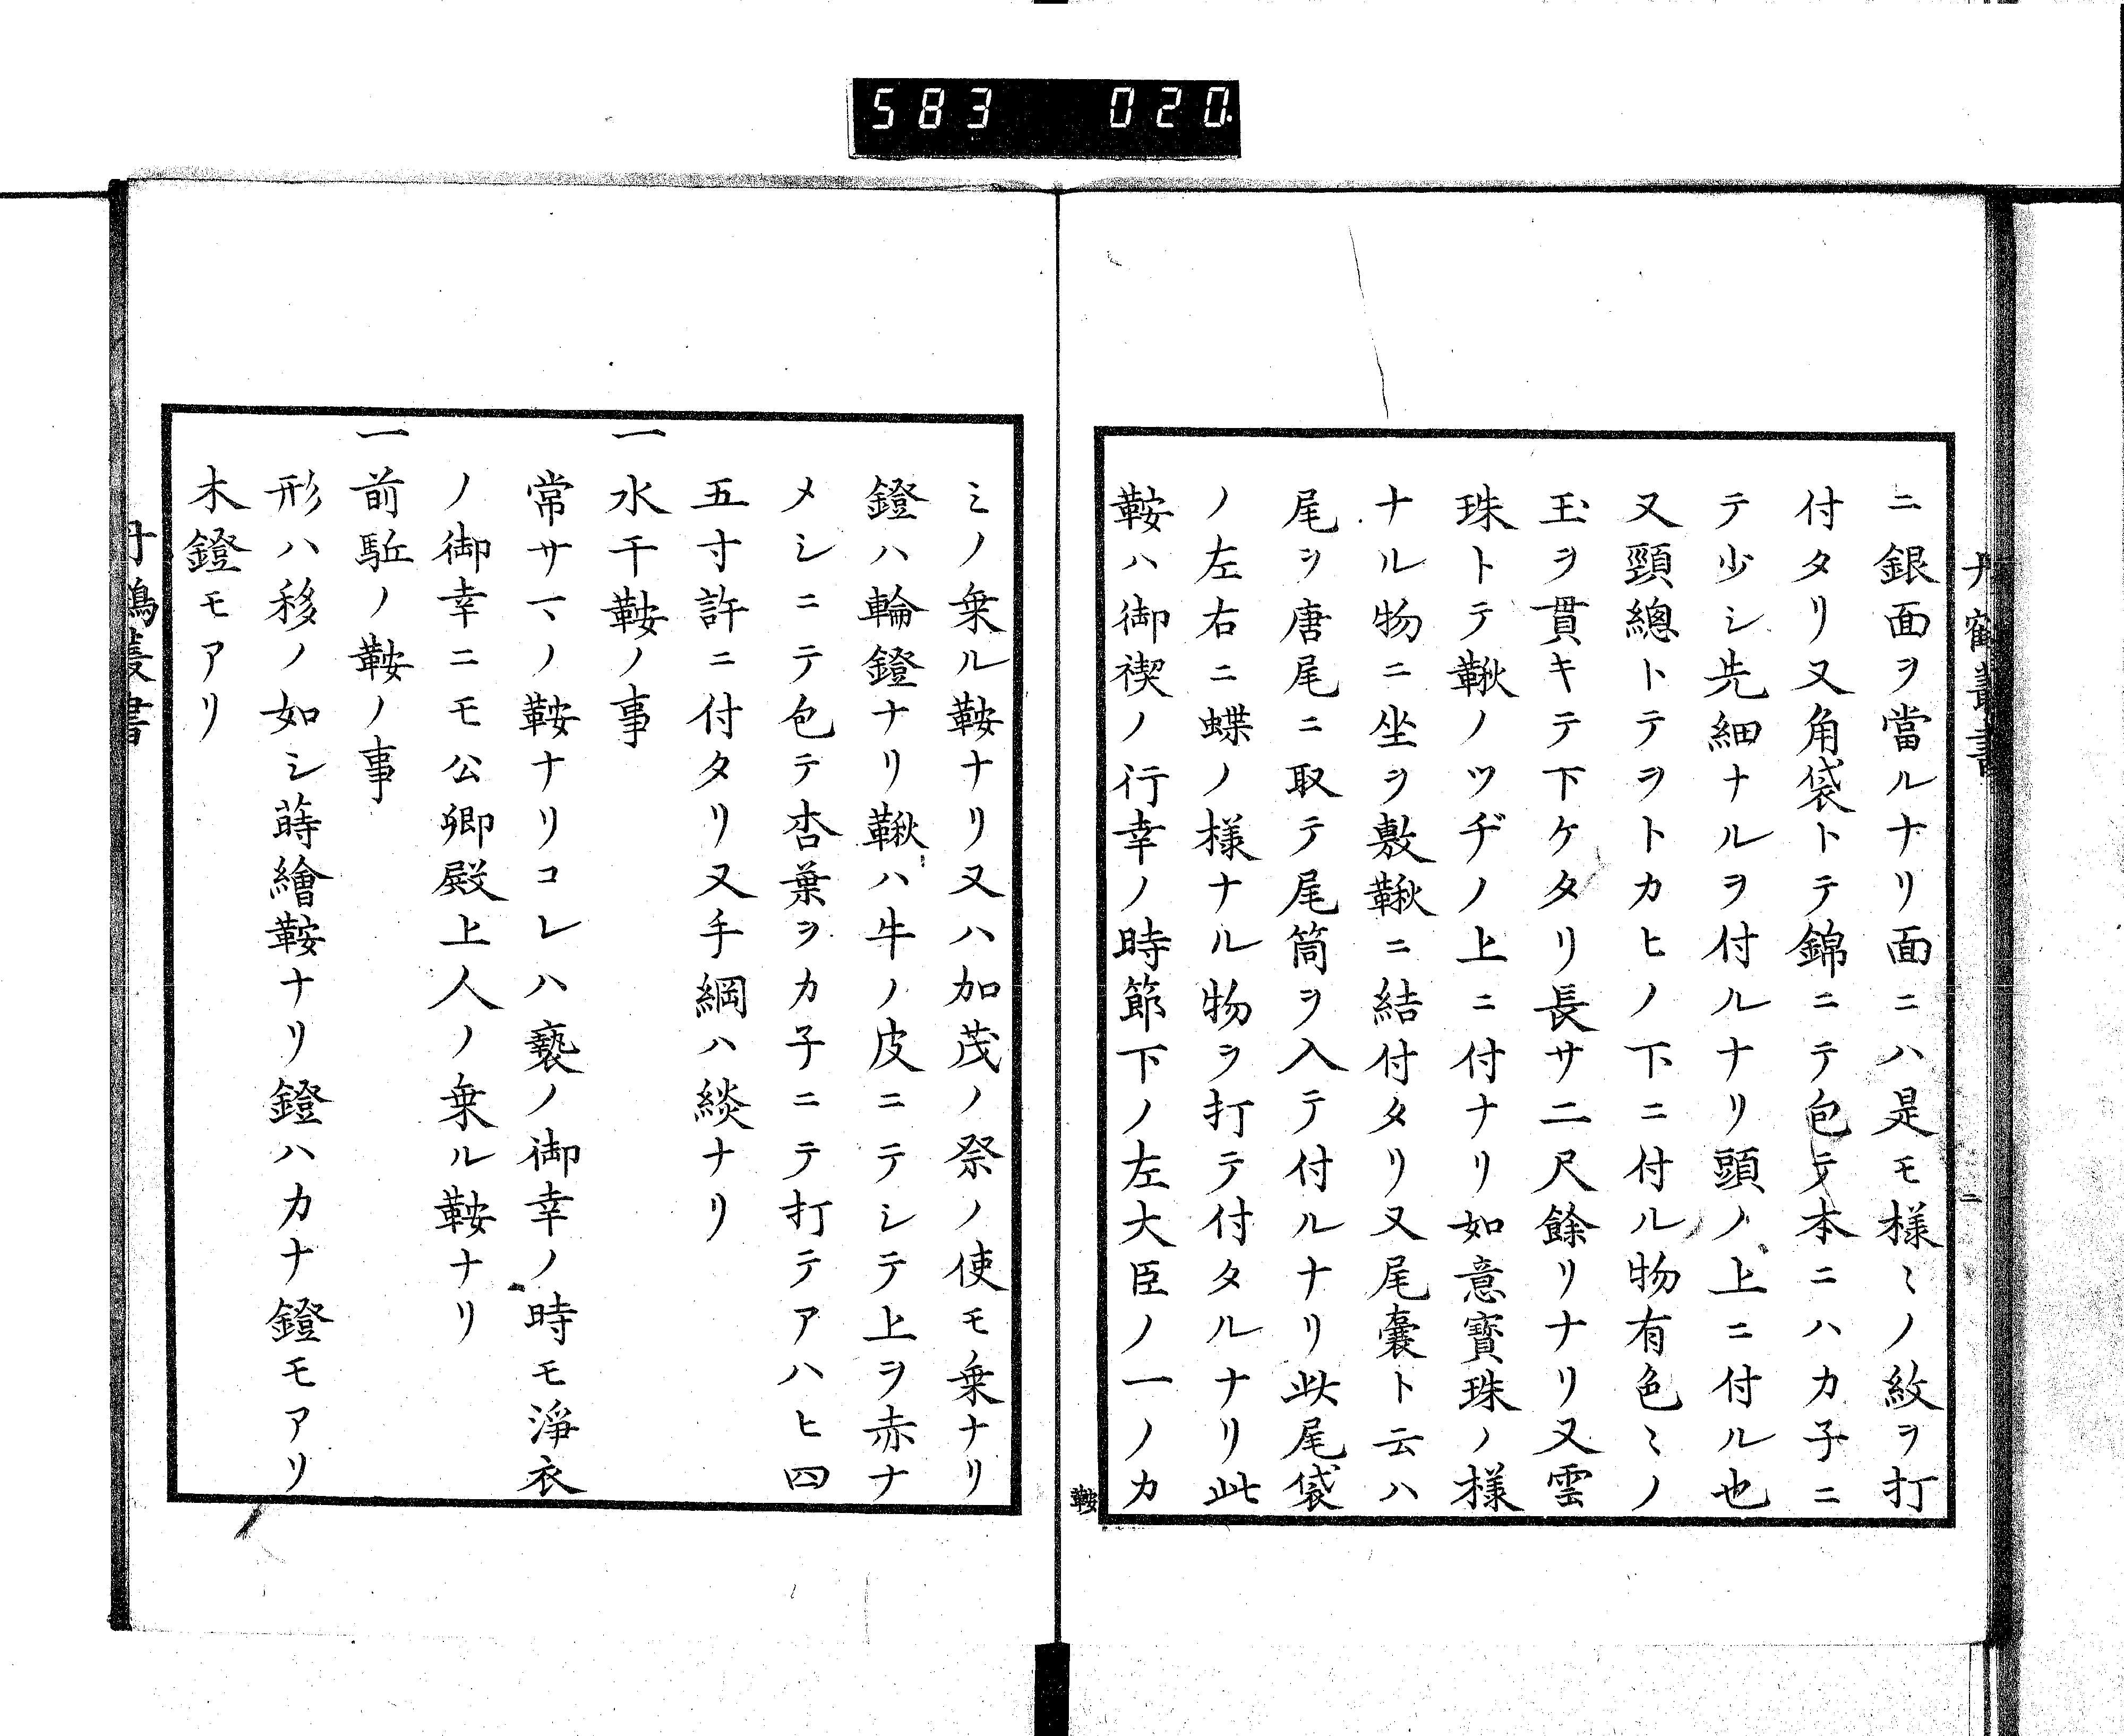 583 020
丹鶴叢書
二
ニ銀面ヲ當ルナリ面ニハ是モ様ミノ紋ヲ打
付タリ又角袋トテ錦ニテ包テ本ニハカ子ニ
テ少シ先細ナルヲ付ルナリ頭ノ上ニ付ル也
又頸總トテヲトカヒノ下ニ付ル物有色ミノ
玉ヲ貫キテ下ケタリ長サ二尺餘リナリ又雲
珠トテ鞦ノツヂノ上ニ付ナリ如意寳珠ノ様
ナル物ニ坐ヲ敷鞦ニ結付タリ又尾嚢ト云ハ
尾ヲ唐尾ニ取テ尾筒ヲ入テ付ルナリ此尾袋
ノ左右ニ蝶ノ様ナル物ヲ打テ付タルナリ此
鞍ハ御禊ノ行幸ノ時節下ノ左大臣ノ一ノカ
鞍
ミノ乗ル鞍ナリ又ハ加茂ノ祭ノ使モ乗ナリ
鐙ハ輪鐙ナリ鞦ハ牛ノ皮ニテシテ上ヲ赤ナ
メシニテ包テ杏葉ヲカ子ニテ打テアハヒ四
五寸許ニ付タリ又手綱ハ緂ナリ
一水干鞍ノ事
常サマノ鞍ナリコレハ褻ノ御幸ノ時モ淨衣
ノ御幸ニモ公卿殿上人ノ乗ル鞍ナリ
一前駈ノ鞍ノ事
形ハ移ノ如シ蒔繪鞍ナリ鐙ハカナ鐙モアリ
木鐙モアリ
丹鶴叢書